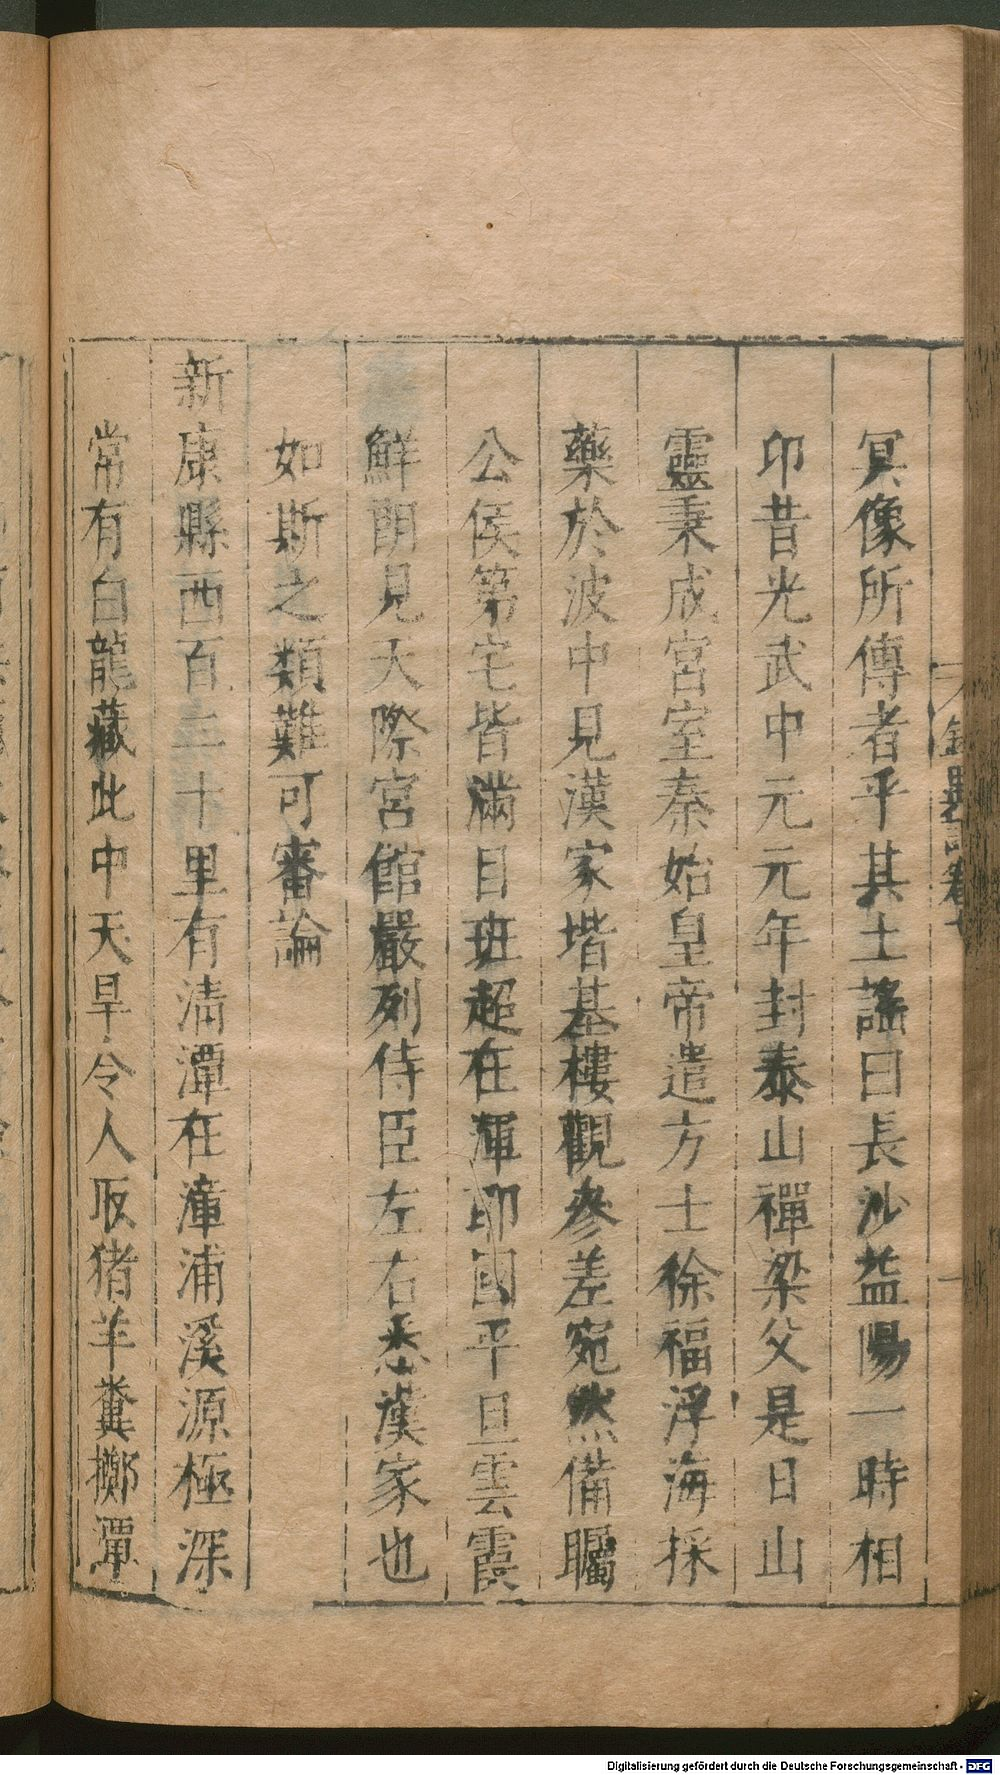 冥像所傳者乎其土謠曰長沙益陽一時相
印昔光武中元元年封泰山禪梁父是日山
靈秉成宮室秦始皇帝遣方士徐福浮海採
藥於波中見漢家堦基樓觀參差宛然備矚
公侯第宅皆滿目班超在渾印國平旦雲霞
鮮朗見天際宮館嚴列侍臣左右悉漢家也
如斯之類難可審論
新康縣西百二十里有清潭在漳浦溪源極深
常有白龍藏此中天旱令人取猪羊糞擲潭
Digitalisierung gefördert durch die Deutsche Forschungsgemeinschaft - DFG